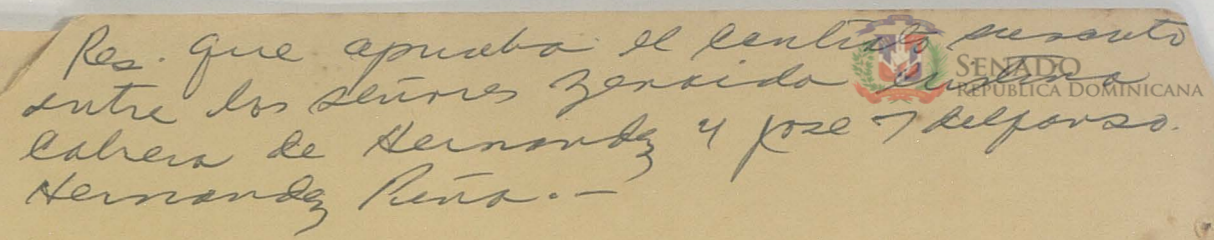 Res. que aprueba el contrato suscrito
entre los señores Zeneida
Cabrera de Hernandez y Jose Idelfonso.
Hernandez Peña.—
SENADO
REPÚBLICA DOMINICANA